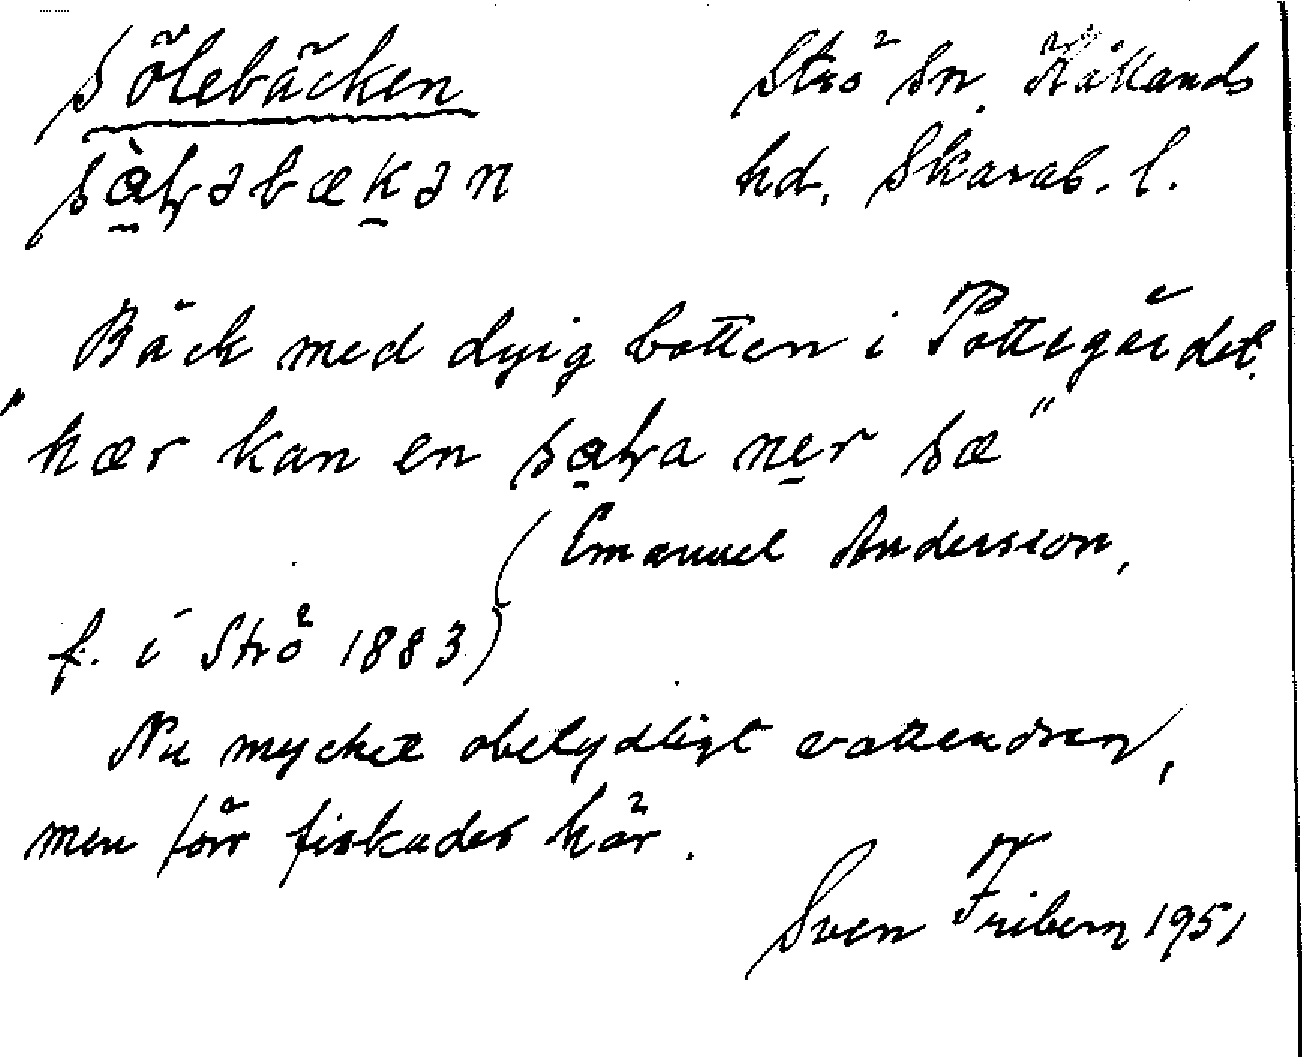 Sölebäcken Strö sn. Kållands
sàlɂəbækən hd, Skarab. l.
Bäck med dyig botten i Pottegärdet.
"hær kan en sala ner sæ"
(Emanuel Andersson,
f. i Strö 1883)
Nu mycket obetydligt vattendrag,
men förr fiskades här.
Sven Friberg 1951